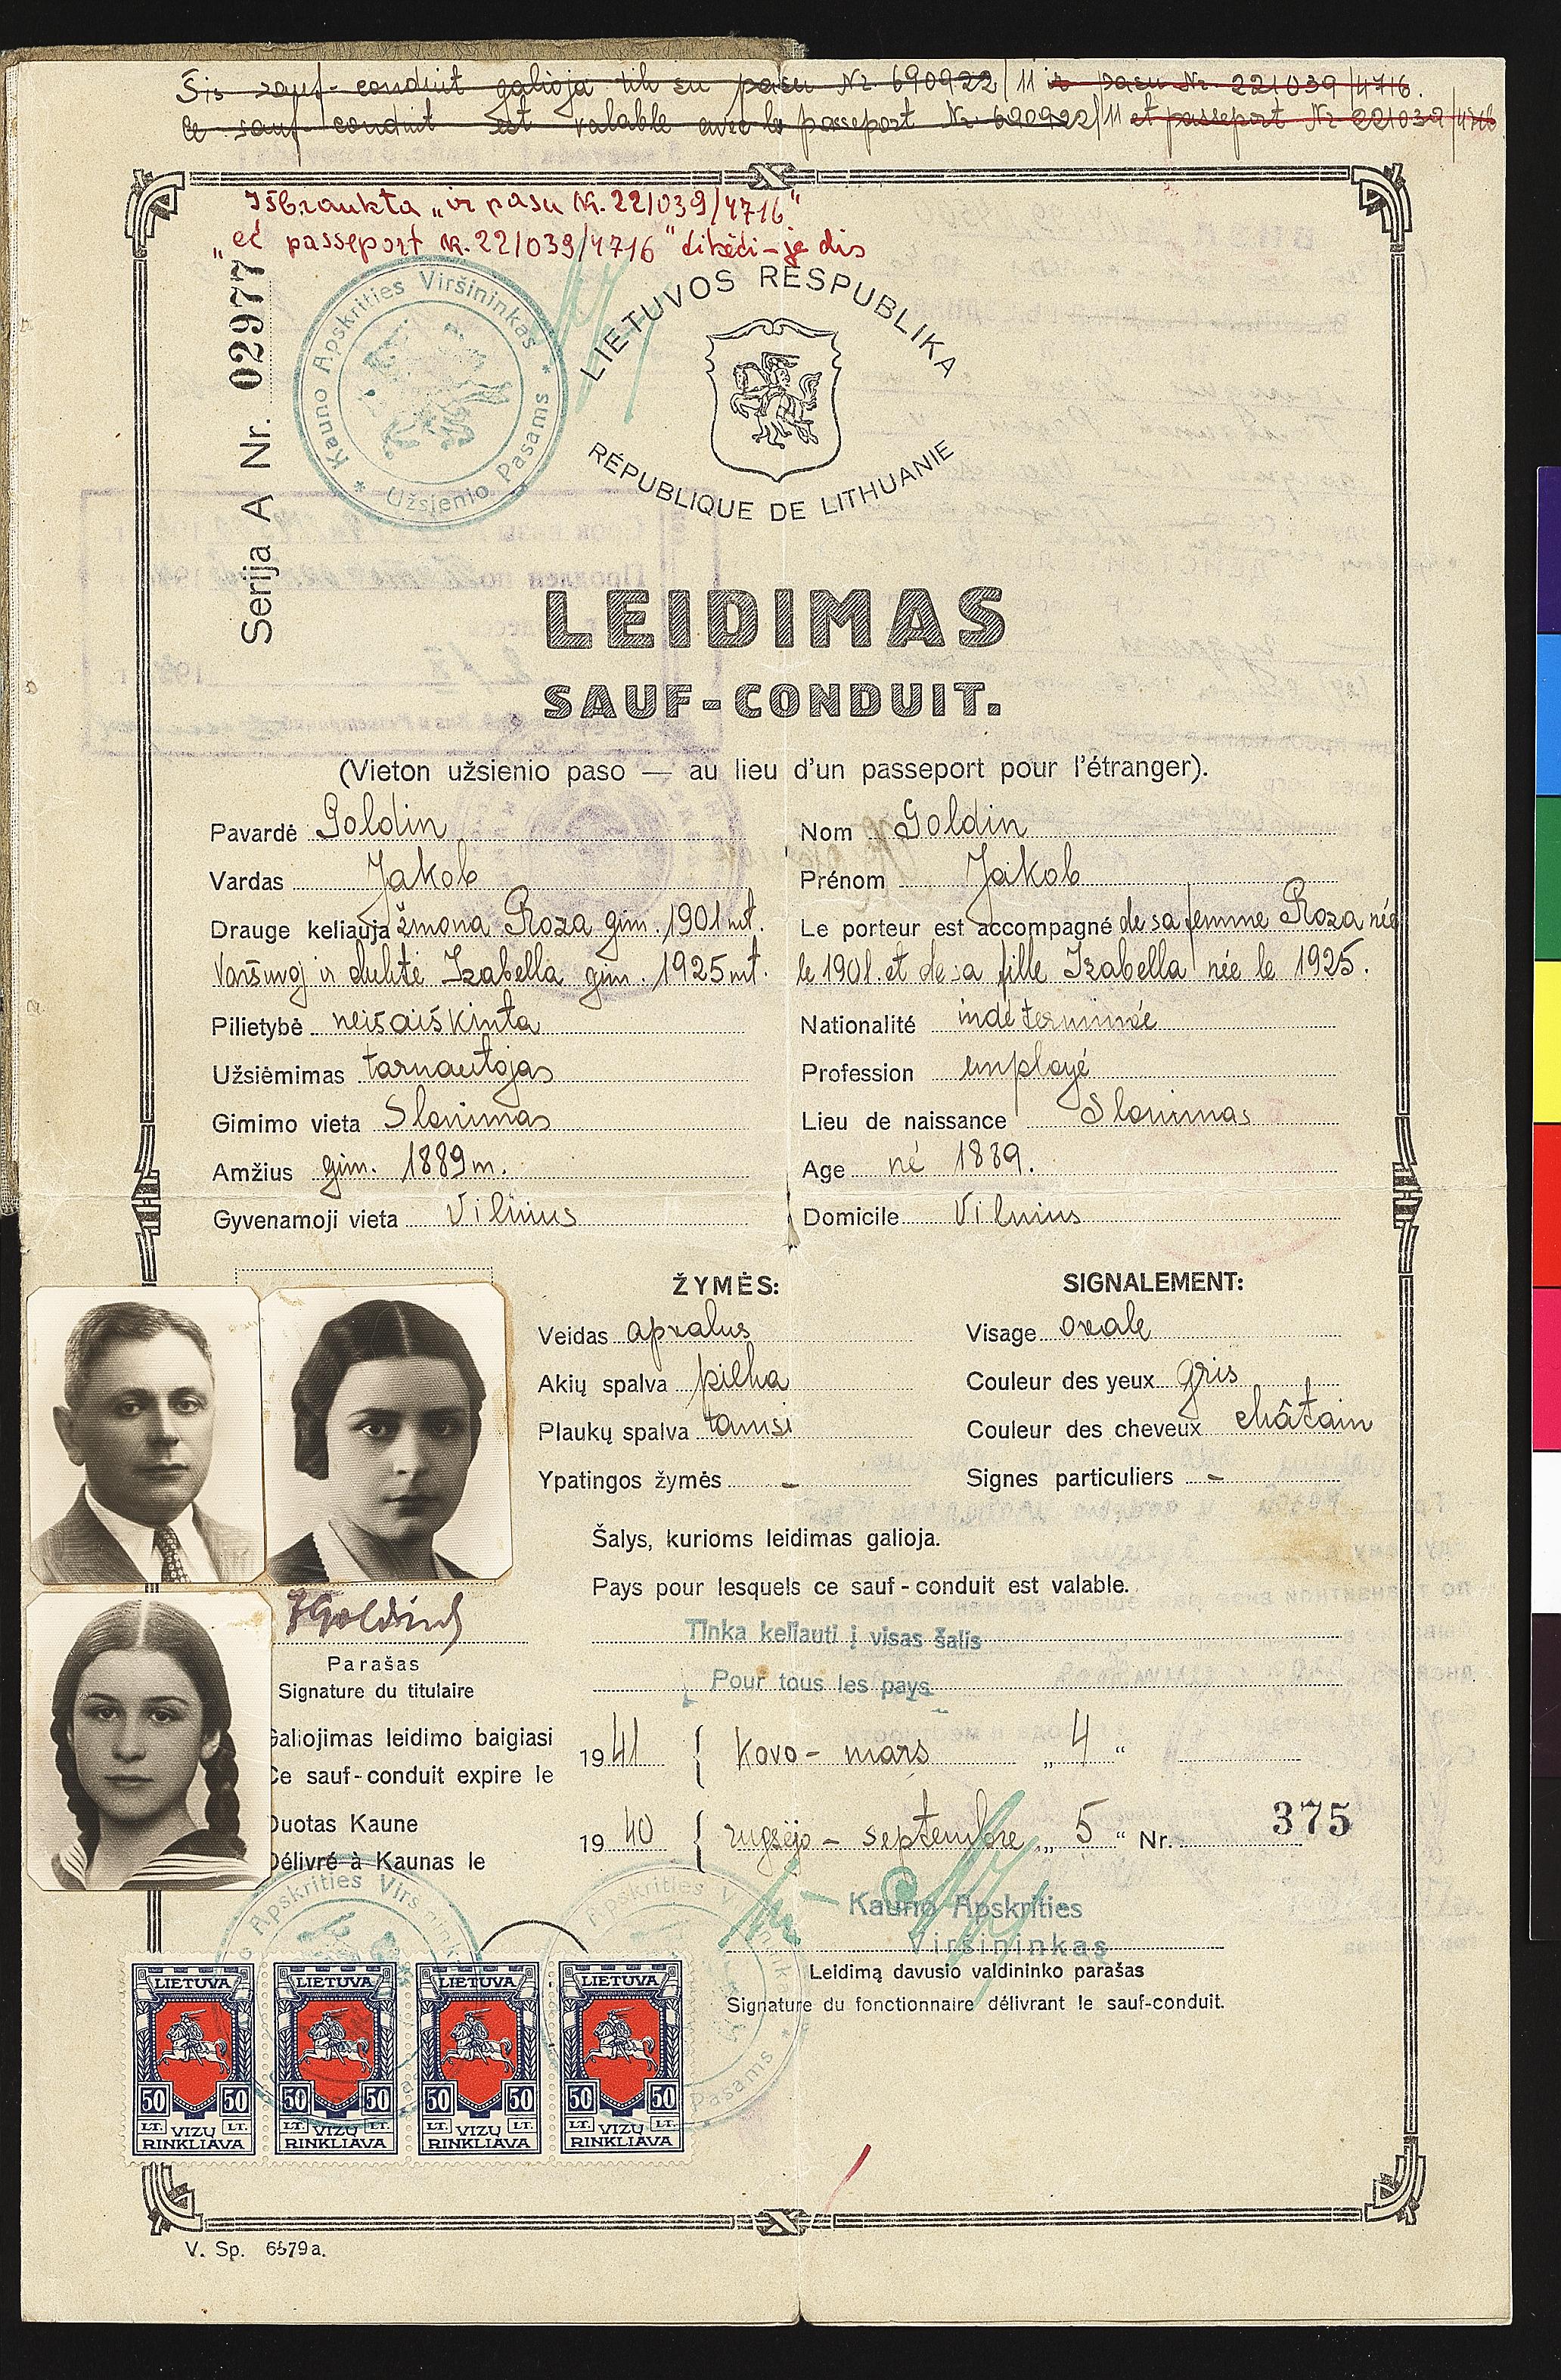 Šis sauf-conduit galioja tik su pasu Nr 690922/11 ir pasu Nr. 221039/4716.
Ce sauf-conduit est valable avec le passeport Nr 690922/11 et passeport Nr 221039/4716
Išbraukta „ir pasu Nr. 221039/4716"
„et passeport Nr. 221039/4716" tikėti-
Serija A Nr. 02977
Kauno Apskrities Viršininkas * Užsienio Pasams *
LIETUVOS RESPUBLIKA
RÉPUBLIQUE DE LITHUANIE
LEIDIMAS
SAUF-CONDUIT.
(Vieton užsienio paso — au lieu d'un passeport pour l'étranger).
Pavardė Goldin Nom Goldin
Vardas Jakob Prénom Jakob
Drauge keliauja žmona Roza gim. 1901 mt. Le porteur est accompagné de sa femme Roza née
ir dukte Izabella gim. 1925 mt. le 1901. et de sa fille Izabella née le 1925.
Pilietybė neišaiškinta Nationalité indeterminée
Užsiėmimas tarnautojas Profession employé
Gimimo vieta Slonimas Lieu de naissance Slonimas
Amžius gim. 1889 m. Age né 1889.
Gyvenamoji vieta Vilnius Domicile Vilnius
ŽYMĖS: SIGNALEMENT:
Veidas apvalus Visage ovale
Akių spalva pilka Couleur des yeux gris
Plaukų spalva tamsi Couleur des cheveux châtain
Ypatingos žymės - Signes particuliers -
Šalys, kurioms leidimas galioja.
Pays pour lesquels ce sauf-conduit est valable.
JGoldin
Tinka keliauti į visas šalis
Parašas
Signature du titulaire
Pour tous les pays
Galiojimas leidimo baigiasi
Ce sauf-conduit expire le
1941 { Kovo - mars „ 4 “
Duotas Kaune
Délivré à Kaunas le
1940 { rugsėjo - septembre „ 5 “ Nr. 375
Kauno Apskrities
Viršininkas
Leidimą davusio valdininko parašas
Signature du fonctionnaire délivrant le sauf-conduit.
Apskrities Viršininkas
Apskrities V
Pasams *
LIETUVA LIETUVA LIETUVA LIETUVA
50 50 50 50 50 50 50 50
LT. LT. LT. LT. LT. LT. LT. LT.
VIZŲ VIZŲ VIZŲ VIZŲ
RINKLIAVA RINKLIAVA RINKLIAVA RINKLIAVA
V. Sp. 6579a.